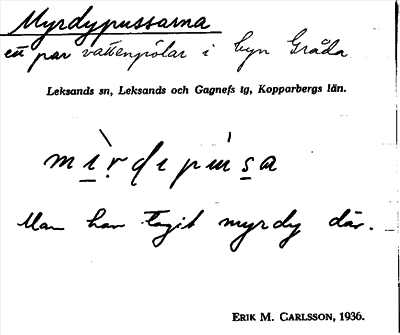 Myrdypussarna
ett par vattenpölar i byn Gråda
Leksands sn, Leksands och Gagnefs tg, Kopparbergs län.
Man har tagit myrdy där.
ERIK M. CARLSSON, 1936.